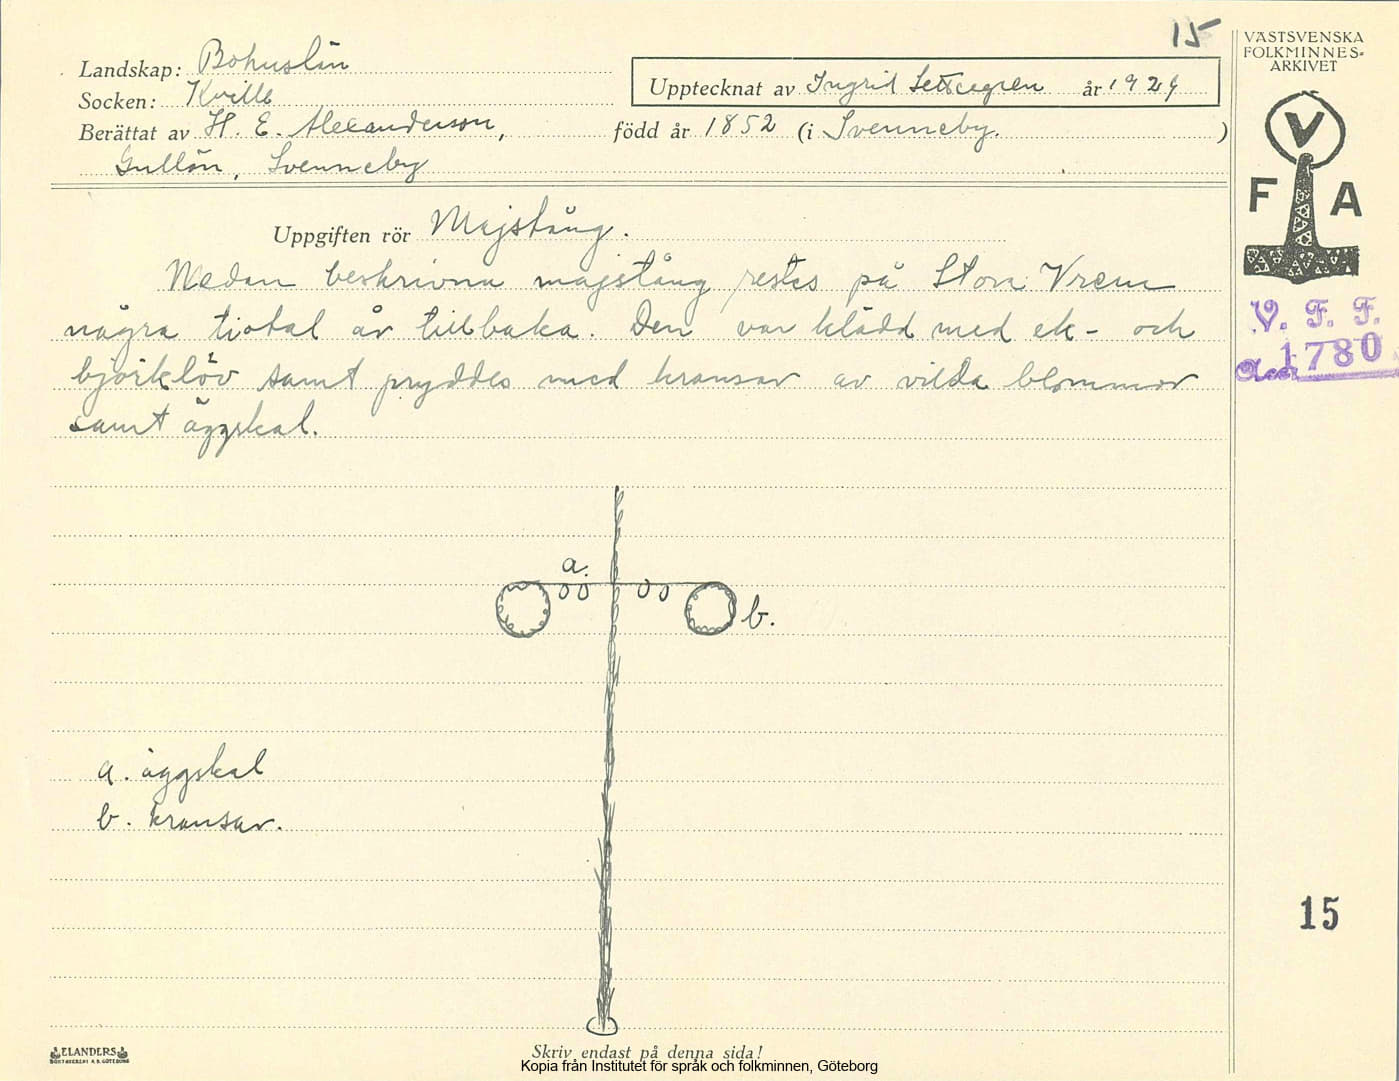 15
VÄSTSVENSKA
FOLKMINNES-
ARKIVET
Landskap: Bohuslän
Socken: Kville
Upptecknat av Ingrid år 1929
Berättat av H. E. Alexanderson, född år 1852 (i Svenneby. )
Gullön, Svenneby
V
F A
Uppgiften rör Majstång.
Nedan beskrivna majstång restes på Stora Vrem
några tiotal år tillbaka. Den var klädd med ek- och
björklöv samt pryddes med kransar av vilda blommor
samt äggskal.
V. F. F.
Acc 1780
a.
b.
a. äggskal
b. kransar.
15
ELANDERS
BOKTRYCKERI A.B. GÖTEBORG
Skriv endast på denna sida!
Kopia från Institutet för språk och folkminnen, Göteborg